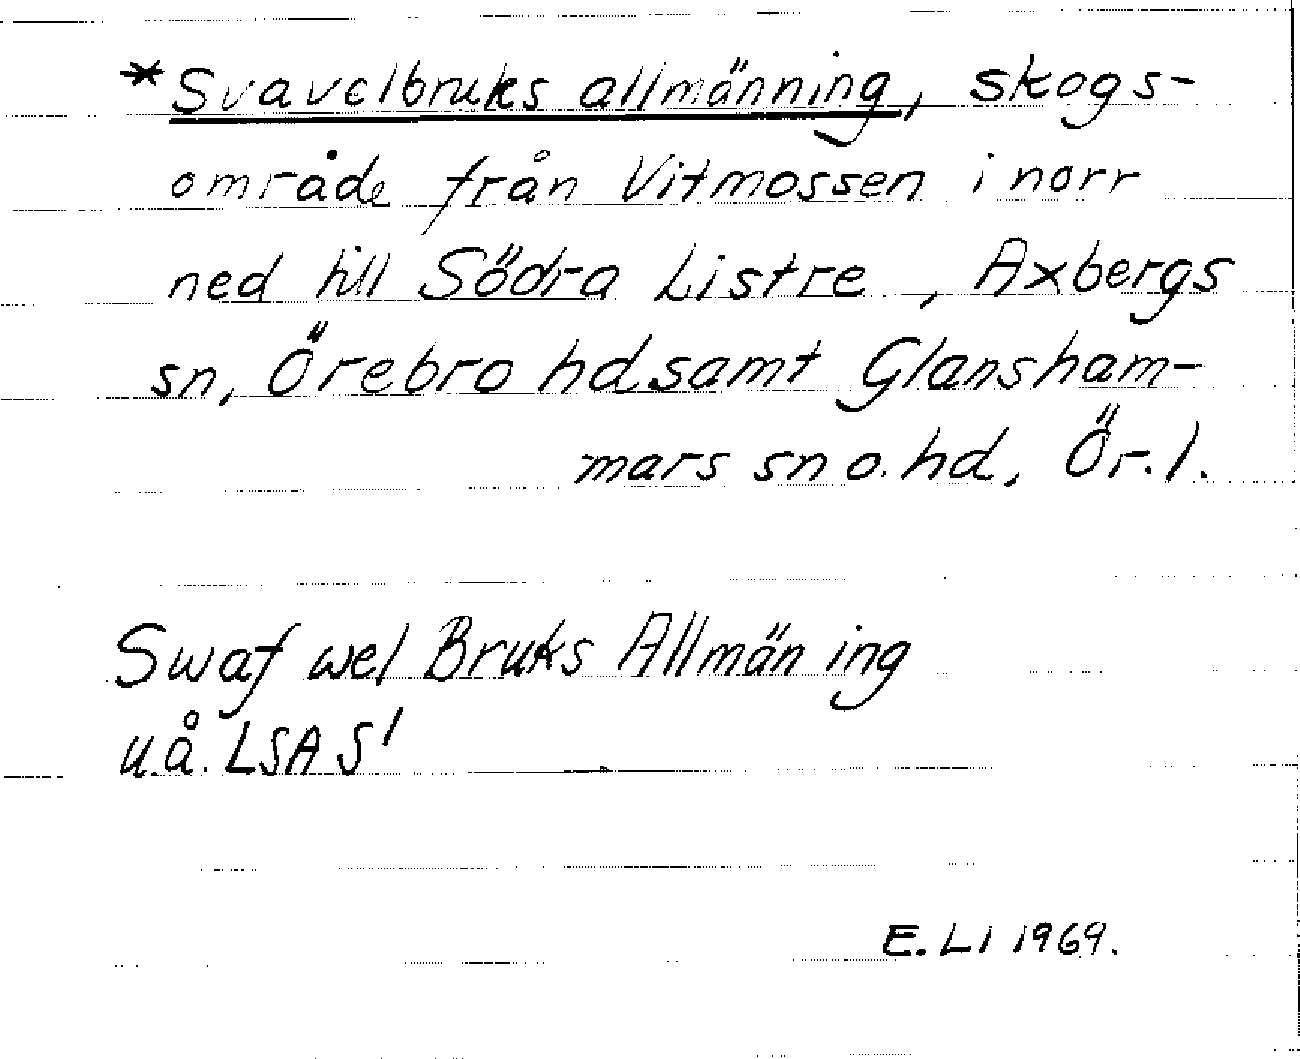 *Svavelbruks allmänning, skogs-
område från Vitmossen i norr
ned till Södra Listre, Axbergs
sn, Örebro hd samt Glansham-
mars sn o. hd, Ör. l.
Swafwel Bruks Allmäning
u.å. LSA S1
E. LI 1969.